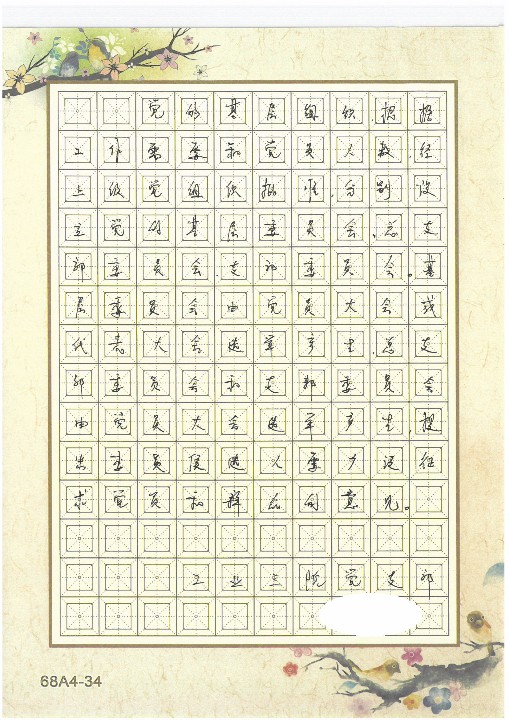 党的基层组织,根据
工作需要和党员人数,经
上级党组织批准,分别设
立党的基层委员会、总支
部委员会、支部委员会。基
层委员会由党员大会或
代表大会选举产生,总支
部委员会和支部委员会
由党员大会选举产生,提
出委员候选人要广泛征
求党员和群众的意见。
工业与院党支部
68A4-34